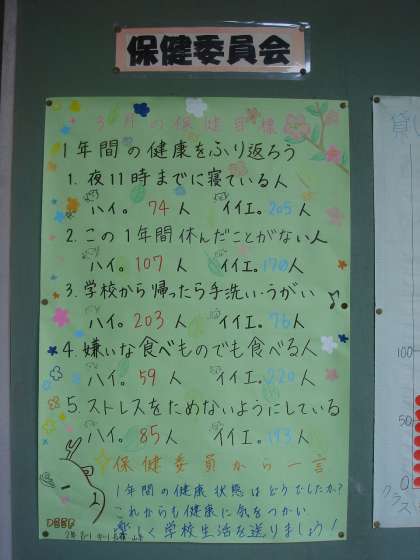 保健委員会
3月の保健目標
1年間の健康をふり返ろう
1. 夜11時までに寝ている人
ハイ。 74人 イイエ。205人
2. この1年間休んだことがない人
ハイ。 107人 イイエ。170人
3. 学校から帰ったら手洗い・うがい
ハイ。 203人 イイエ。76人
4. 嫌いな食べものでも食べる人
ハイ。 59人 イイエ。220人
5. ストレスをためないようにしている
ハイ。 85人 イイエ。193人
☆保健委員から一言
1年間の健康状態はどうでしたか?
これからも健康に気をつかい
楽しく学校生活を送りましょう!
貸し
100
50
0
クラス